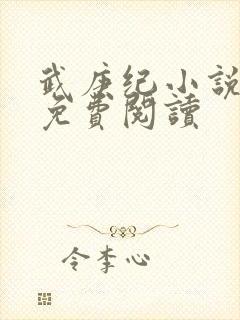 武庚纪小説
免費閲讀
令李心